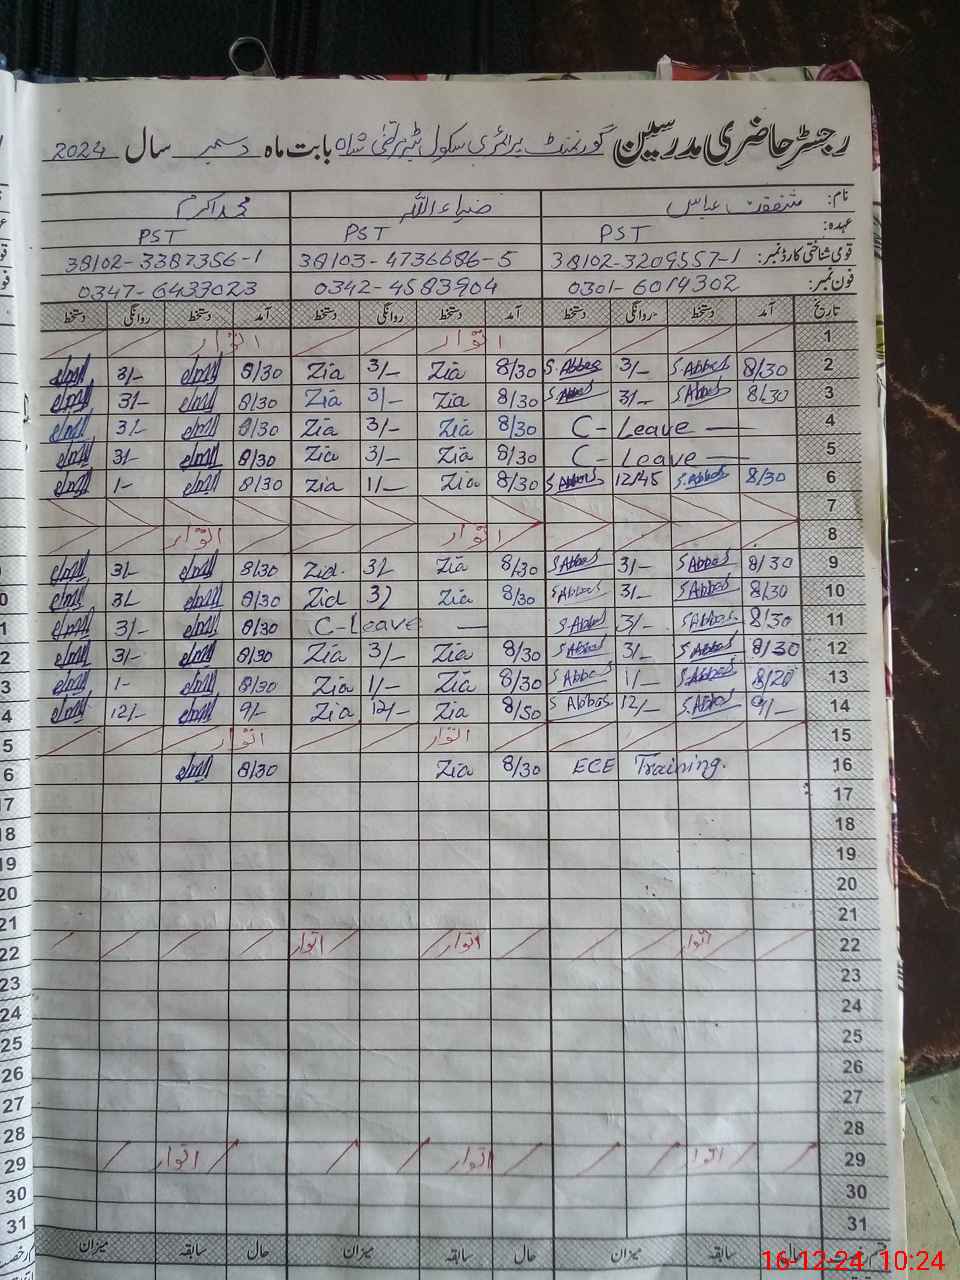 رجسٹر حاضری مدرسین گورنمنٹ پرائمری سکول شاہ بابت ماہ دسمبر سال 2024
نام: شفقت عباس ضیاء اللہ محمد اکرم
عہدہ: PST PST PST
قومی شناختی کارڈ نمبر: 38102-3209557-1 38103-4736686-5 38102-3387356-1
فون نمبر: 0301-6014302 0342-4583904 0347-6433023
تاریخ آمد دستخط روانگی دستخط آمد دستخط روانگی دستخط آمد دستخط روانگی دستخط
1 اتوار اتوار
2 8/30 S.Abbas 3/- S.Abbas 8/30 Zia 3/- Zia 8/30 3/-
3 8/30 S.Abbas 3/- S.Abbas 8/30 Zia 3/- Zia 8/30 3/-
4 C-Leave — 8/30 Zia 3/- Zia 8/30 3/-
5 C-Leave — 8/30 Zia 3/- Zia 8/30 3/-
6 8/30 S.Abbas 12/45 S.Abbas 8/30 Zia 1/- Zia 8/30 1/-
7
8 اتوار اتوار
9 8/30 S Abbas 3/- S Abbas 8/30 Zia 3/- Zia 8/30 3/-
10 8/30 S Abbas 3/- S Abbas 8/30 Zia 3/- Zia 8/30 3/-
11 8/30 S Abbas 3/- S Abbas C-Leave — 8/30 3/-
12 8/30 S Abbas 3/- S Abbas 8/30 Zia 3/- Zia 8/30 3/-
13 8/20 S.Abbas 1/- S Abbas 8/30 Zia 1/- Zia 8/30 1/-
14 9/- S.Abbas 12/- S Abbas 8/50 Zia 12/- Zia 9/- 12/-
15 اتوار اتوار
16 ECE Training. 8/30 Zia 8/30
17
18
19
20
21
22 اتوار اتوار اتوار
23
24
25
26
27
28
29 اتوار اتوار اتوار
30
31
حال سابقہ میزان حال سابقہ میزان حال سابقہ میزان
16-12-24 10:24